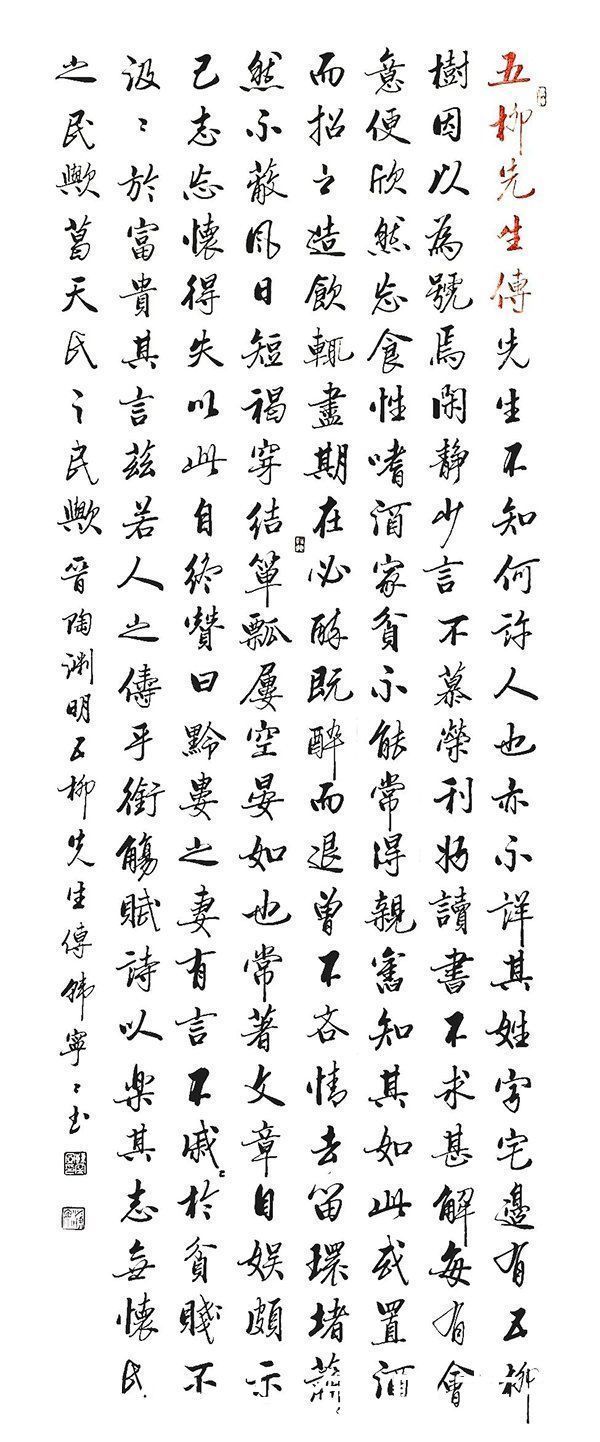 五柳先生傳先生不知何許人也亦不詳其姓字宅邊有五柳
樹因以為號焉閑静少言不慕榮利好讀書不求甚解每有會
意便欣然忘食性嗜酒家貧不能常得親舊知其如此或置酒
而招之造飲輒盡期在必醉既醉而退曾不吝情去留環堵蕭
然不蔽風日短褐穿結簞瓢屢空晏如也常著文章自娛頗示
己志忘懷得失以此自終贊曰黔婁之妻有言不戚〻於貧賤不
汲〻於富貴其言茲若人之儔乎銜觴賦詩以樂其志無懷氏
之民歟葛天氏之民歟晉陶渊明五柳先生傳韩寧〻书